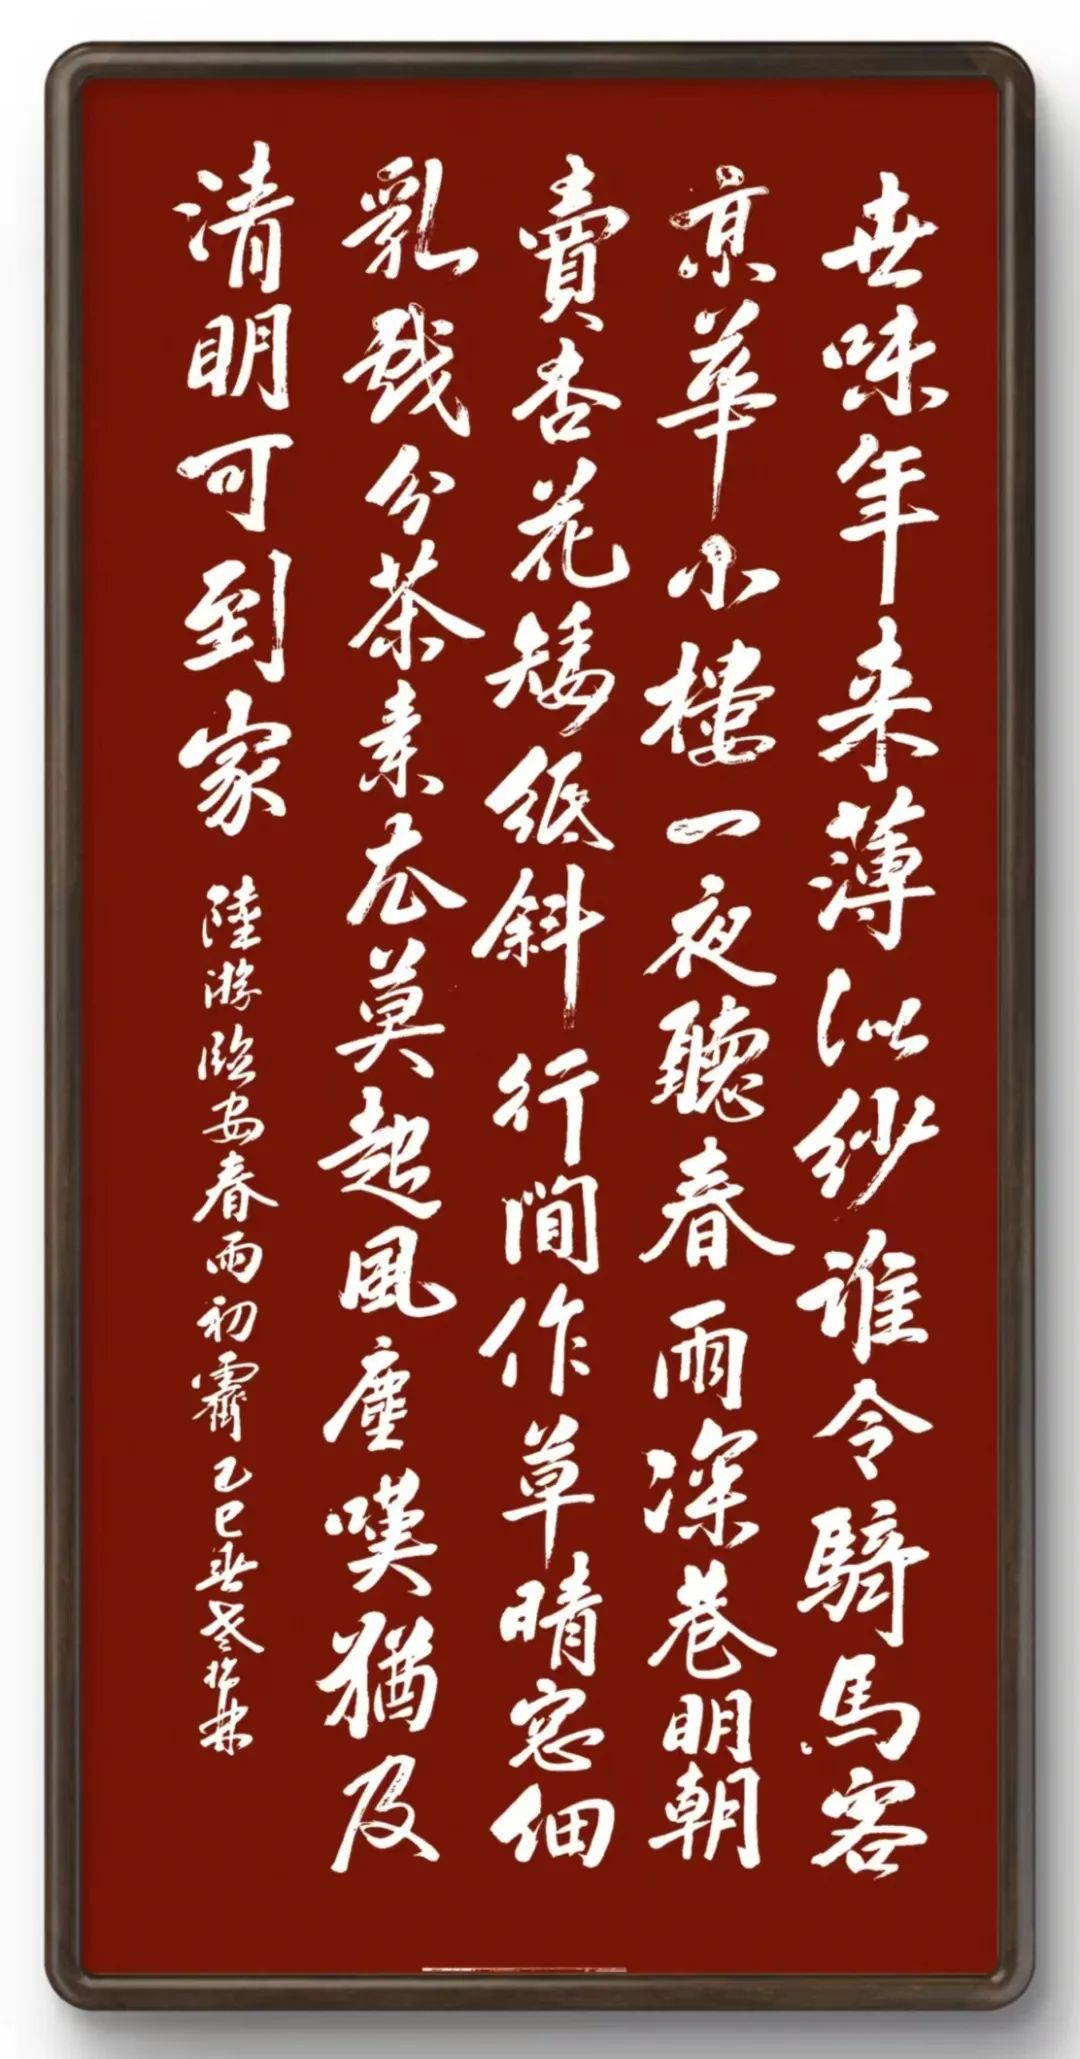 世味年来薄似纱谁令骑马客
京华小楼一夜聽春雨深巷明朝
賣杏花矮纸斜行間作草晴窓细
乳戏分茶素衣莫起風塵嘆猶及
清明可到家
陸游臨安春雨初霽乙巳